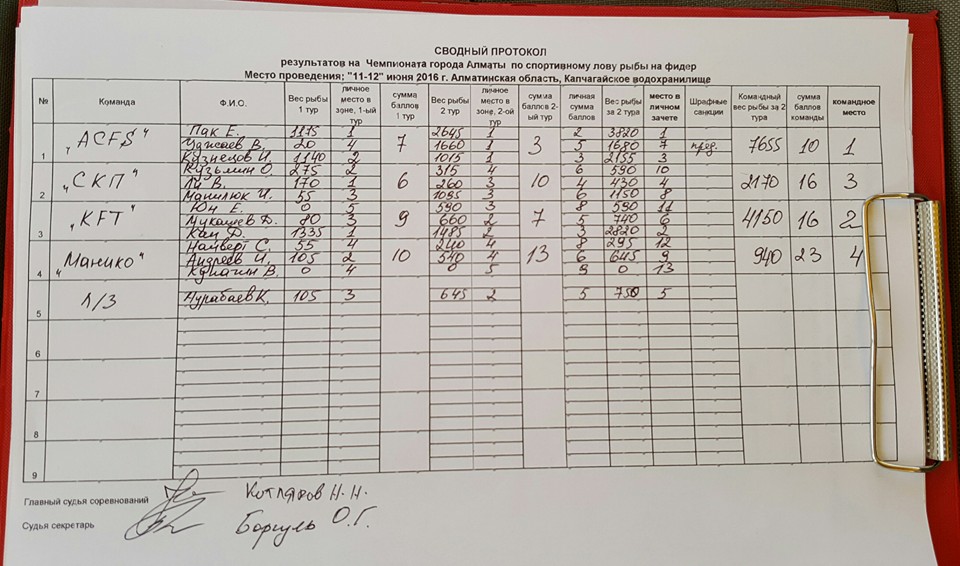 СВОДНЫЙ ПРОТОКОЛ
результатов на Чемпионата города Алматы по спортивному лову рыбы на фидер
Место проведения: "11-12" июня 2016 г. Алматинская область, Капчагайское водохранилище
№ Команда Ф.И.О. Вес рыбы 1 тур личное место в зоне, 1-ый тур сумма баллов 1 тур Вес рыбы 2 тур личное место в зоне, 2-ой тур сумма баллов 2-ый тур личная сумма баллов Вес рыбы за 2 тура место в личном зачете Штрафные санкции Командный вес рыбы за 2 тура сумма баллов команды командное место
1 "ACFS" 7 3 7655 10 1
Пак Е. 1175 1 2645 1 2 3820 1
В. 20 4 1660 1 5 1680 7 пред.
Кузнецов И. 1140 2 1015 1 3 2155 3
2 "СКП" 6 10 2170 16 3
Кузьмин О. 275 2 315 4 6 590 10
Ли В. 170 1 260 3 4 430 4
И. 55 3 1095 3 6 1150 8
3 "KFT" 9 7 4150 16 2
Юн Е. 0 5 590 3 8 590 11
Д. 80 3 660 2 5 740 6
Кан Д. 1335 1 1485 2 3 2820 2
4 "Манико" 10 13 940 23 4
С. 55 4 240 4 8 295 12
Андреев И. 105 2 540 4 6 645 9
В. 0 4 0 5 9 0 13
5 Л/З Нурабаев К. 105 3 645 2 5 750 5
6
7
8
9
Главный судья соревнований Котляров Н.Н.
Судья секретарь Боргуль О.Г.